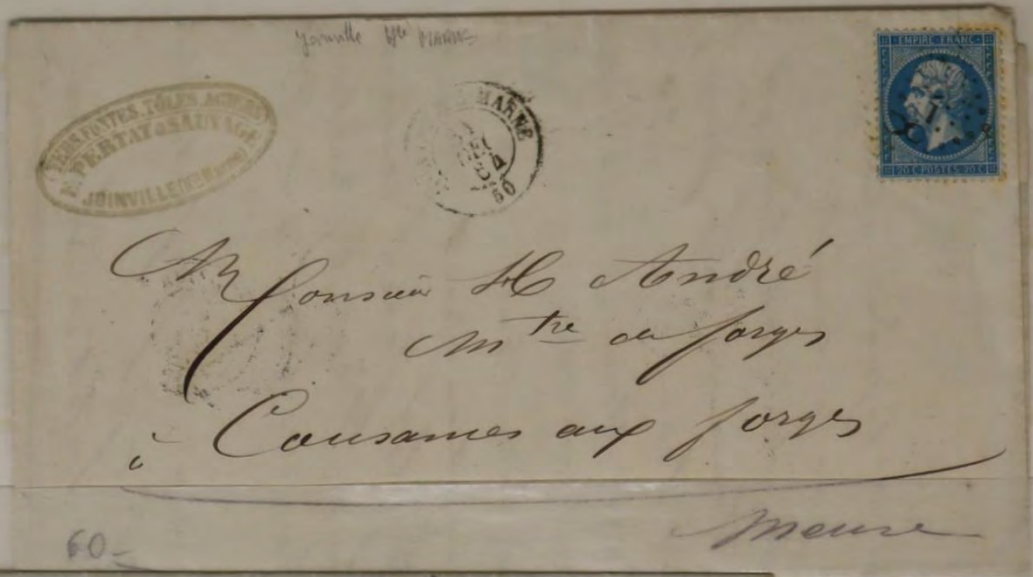 Joinville Hte MARNE
FERS, FONTES, TÔLES, ACIERS
E. PERTAT & SAUVAGE
JOINVILLE (Hte Marne)
MARNE
60
EMPIRE FRANC
20 C POSTES 20 C
Monsieur H André
Mtre de forges
à Cousances aux forges
Meuse
60-